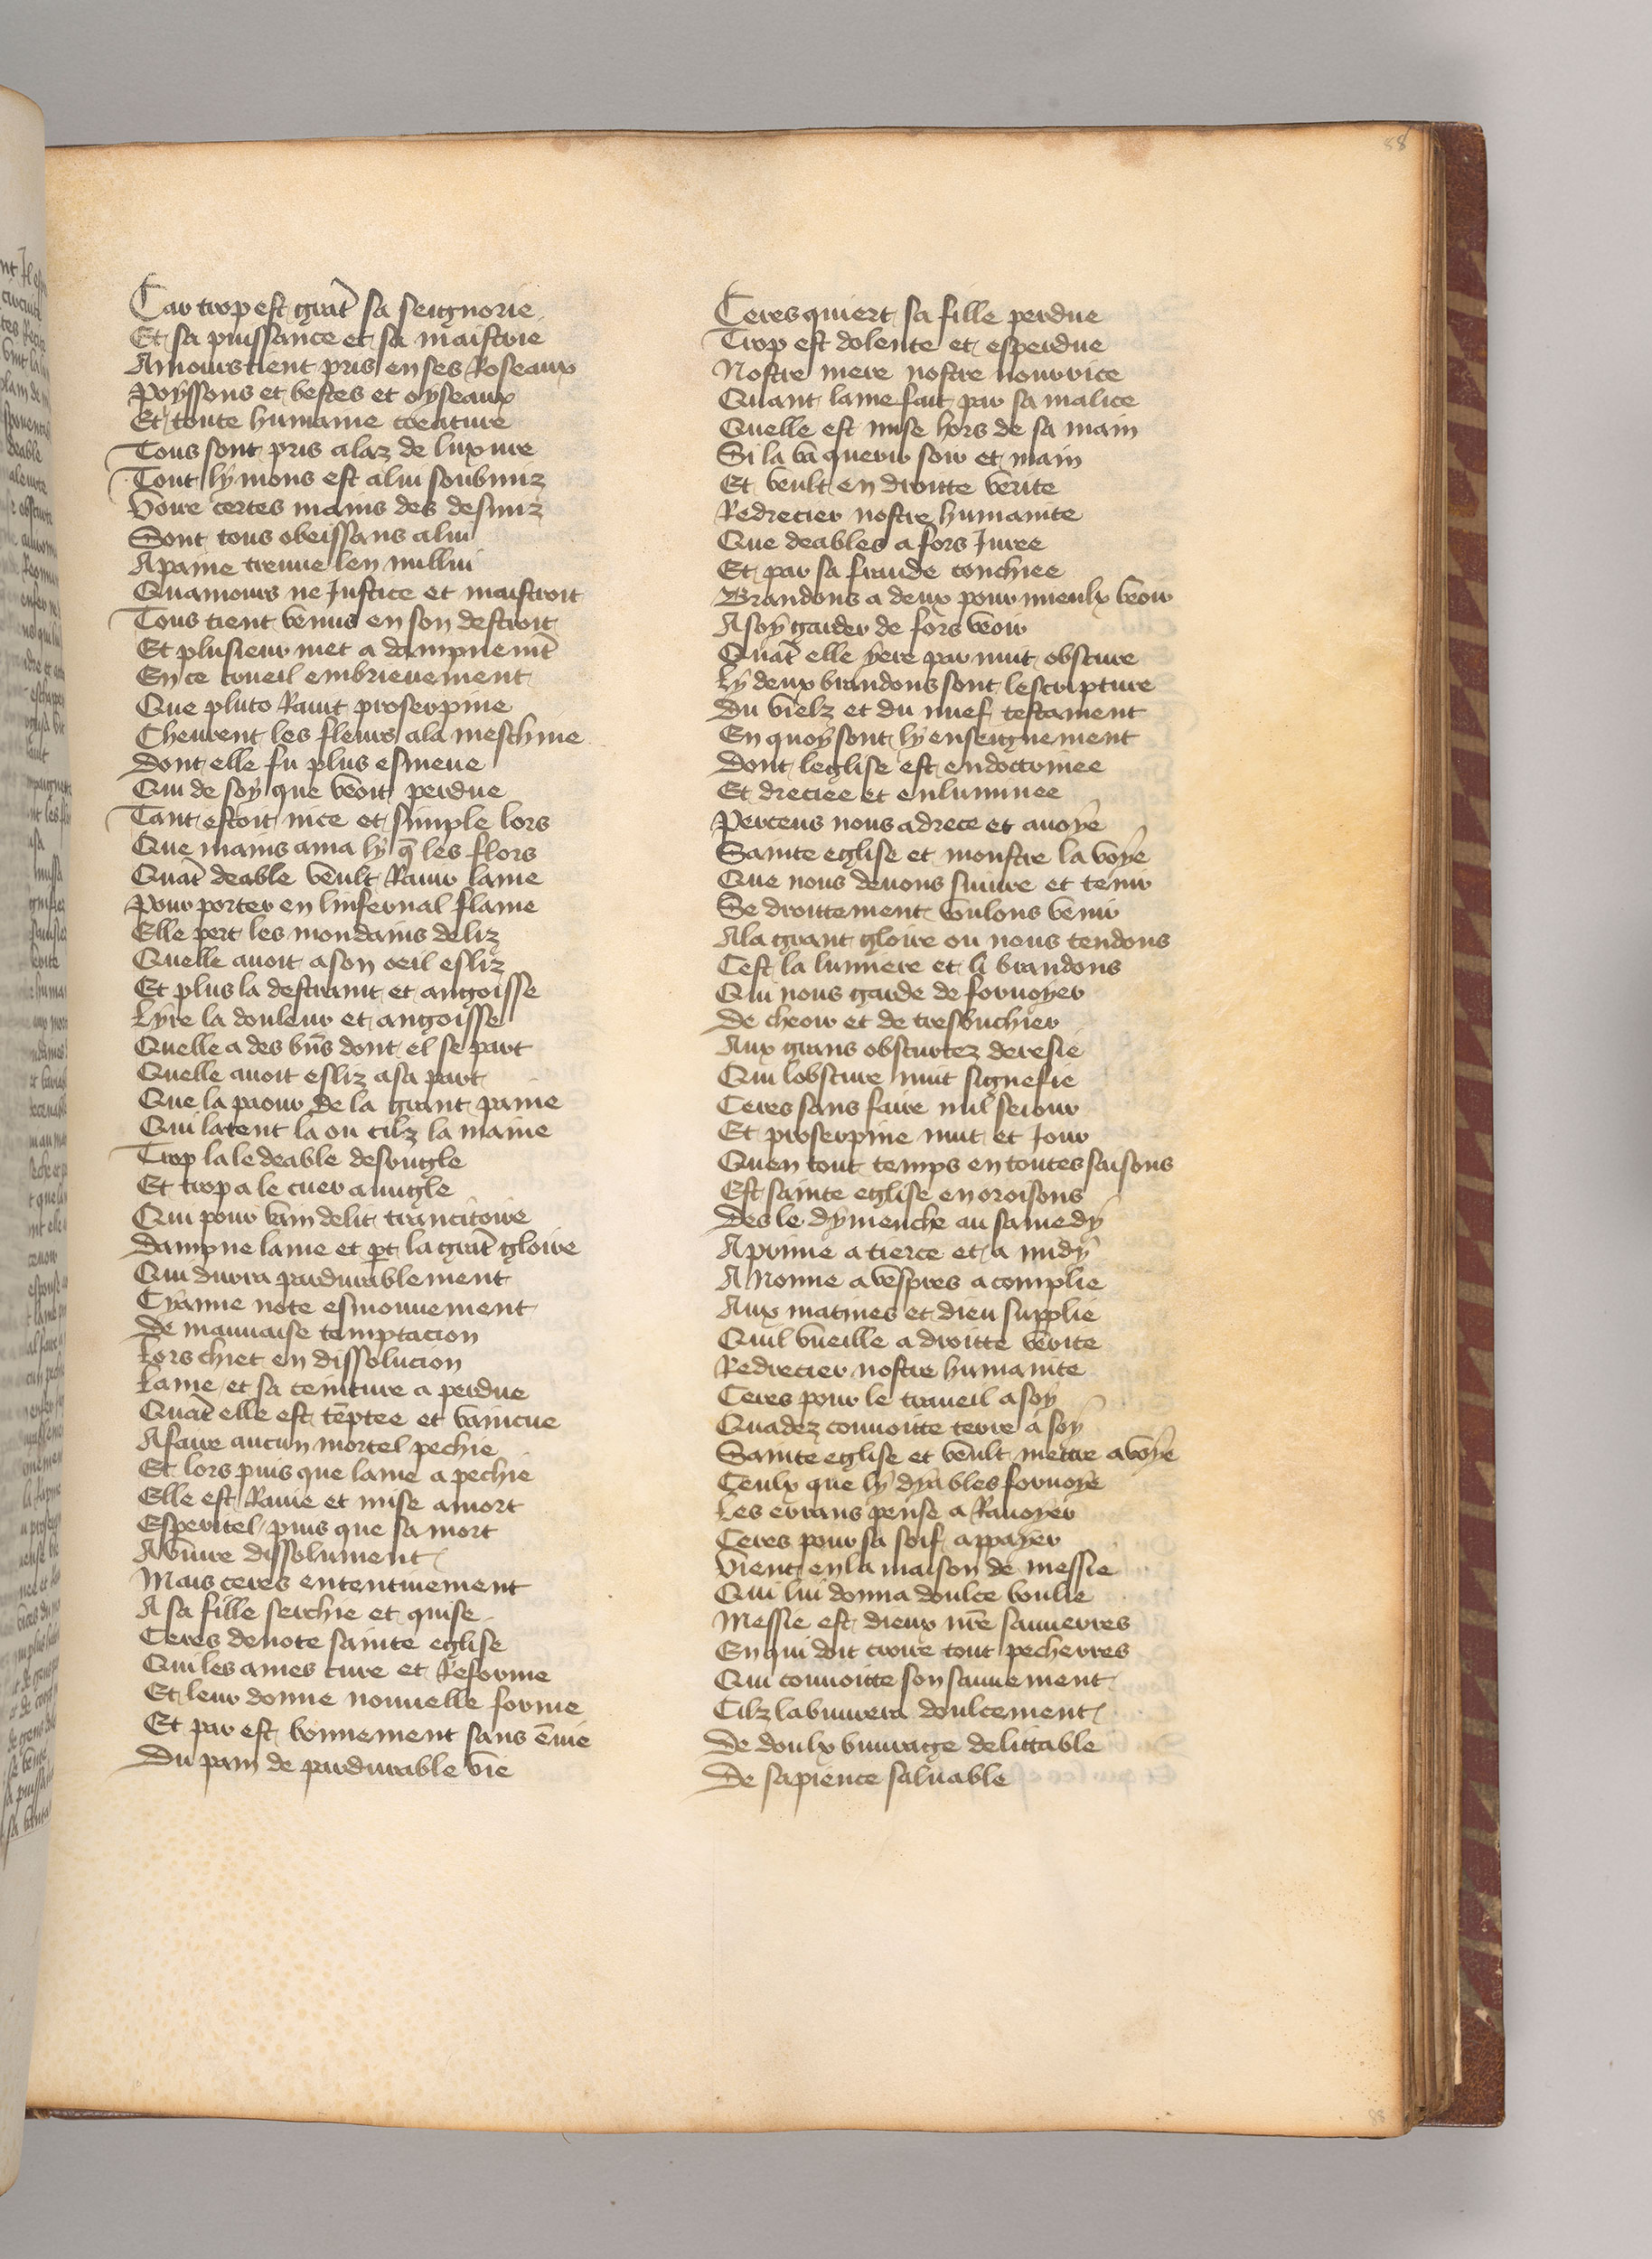 88
Car trop est grāt sa seignorie
Et sa puissance et sa maistrie
Amours tient pris en ses Roseaux
Poyssons et bestes et oyseaux
Et toute humaine creature
Tous sont pris a laz de luxure
Tout ly mons est a lui soubmiz
Voire certes mains des desmiz
Sont tous obeissans a lui
A paine treuue len nullui
Quamours ne Justice et maistroit
Tous tient venus en son destroit
Et plusieur met a dampnemēt
En ce cueil embrieuement
Que pluto Rauit proserpine
Cheurent les fleurs a la meschine
Dont elle fu plus esmeue
Qui de soy que veoit perdue
Tant estoit nice et simple lors
Que mains ama ly q̄ les flors
Quāt deable veult Rauir lame
Pour porter en linfernal flame
Elle pert les mondains deliz
Quelle auoit a son oeil esliz
Et plus la destraint et angoisse
Lyre la douleur et angoisse
Quelle a des bn̄s dont el se part
Quelle auoit esliz a sa part
Que la paour de la grant paine
Qui latent la ou cilz la maine
Trop la le deable desbugle
Et trop a le cuer auugle
Qui pour vain delit trancitoire
Dampne lame et pt la grāt gloire
Qui durra pardurablement
Cyanne note esmouuement
De mauuaise temptacion
Lors chiet en dissolucion
Lame et sa teinture a perdue
Quāt elle est tēptee et vaincue
A faire aucun mortel pechie
Et lors puis que lame a pechie
Elle est Rauie et mise a mort
Esperitel puis que sa mort
A viure dissolument
Mais ceres ententiuement
A sa fille serchie et quise
Ceres denote sainte eglise
Qui les ames cure et Reforme
Et leur donne nouuelle forme
Et par est bonnement sans ēuie
Du pain de pardurable vie
Ceres quiert sa fille perdue
Trop est dolente et esperdue
Nostre mere nostre nourrice
Quant lame fait par sa malice
Quelle est mise hors de sa main
Si la va querir soir et main
Et veult en droitte verite
Redrecier nostre humanite
Que deables a fors Juree
Et par sa fraude conchiee
Brandons a deux pour mieulx veoir
A soy garder de fors veoir
Quāt elle yere par nuit obscure
Ly deux brandons sont lescripture
Du vielz et du nuef testament
En quoy sont ly enseignement
Dont leglise est endoctrinee
Et dreciee et enluminee
Perceus nous adrece et auoye
Sainte eglise et monstre la voye
Que nous deuons suiure et tenir
Se droittement voulons venir
A la grant gloire ou nous tendons
Cest la lumiere et li brandons
Qui nous garde de foruoyer
De cheoir et de tresbuchier
Aux grans obscurtez deresie
Qui lobscure nuit signefie
Ceres sans faire nul seiour
Et proserpine nuit et Jour
Quen tout temps en toutes saisons
Est sainte eglise en oroisons
Des le dymenche au samedy
A prime a tierce et a midy
A Nonne a vespres a complie
Aux matines et dieu supplie
Quil vueille a droitte verite
Redrecier nostre humanite
Ceres pour le traueil a soy
Quadez conuoitte terre a soy
Sainte eglise et veult mettre a voye
Ceulx que ly dyables foruoye
Les errans pense a Rauoyer
Ceres pour sa soif appayer
Vient en la maison de messie
Qui lui donna doulce boulie
Messie est dieux nr̄e sauuerres
En qui doit croire tout pecherres
Qui conuoitte son sauuement
Cilz labuurera doulcement
De doulx buurage delittable
De sapience saluable
88